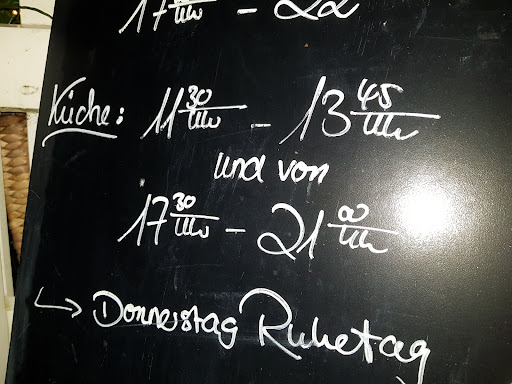 17 Uhr - 22
Küche: 11 30 Uhr - 13 45 Uhr
und von
17 30 Uhr - 21 00 Uhr
↳ Donnerstag Ruhetag